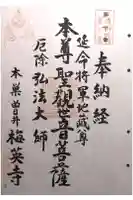 奉納経
延命将軍地蔵尊
本尊聖観世音菩薩
厄除弘法大師
木巣曽井
梅英寺